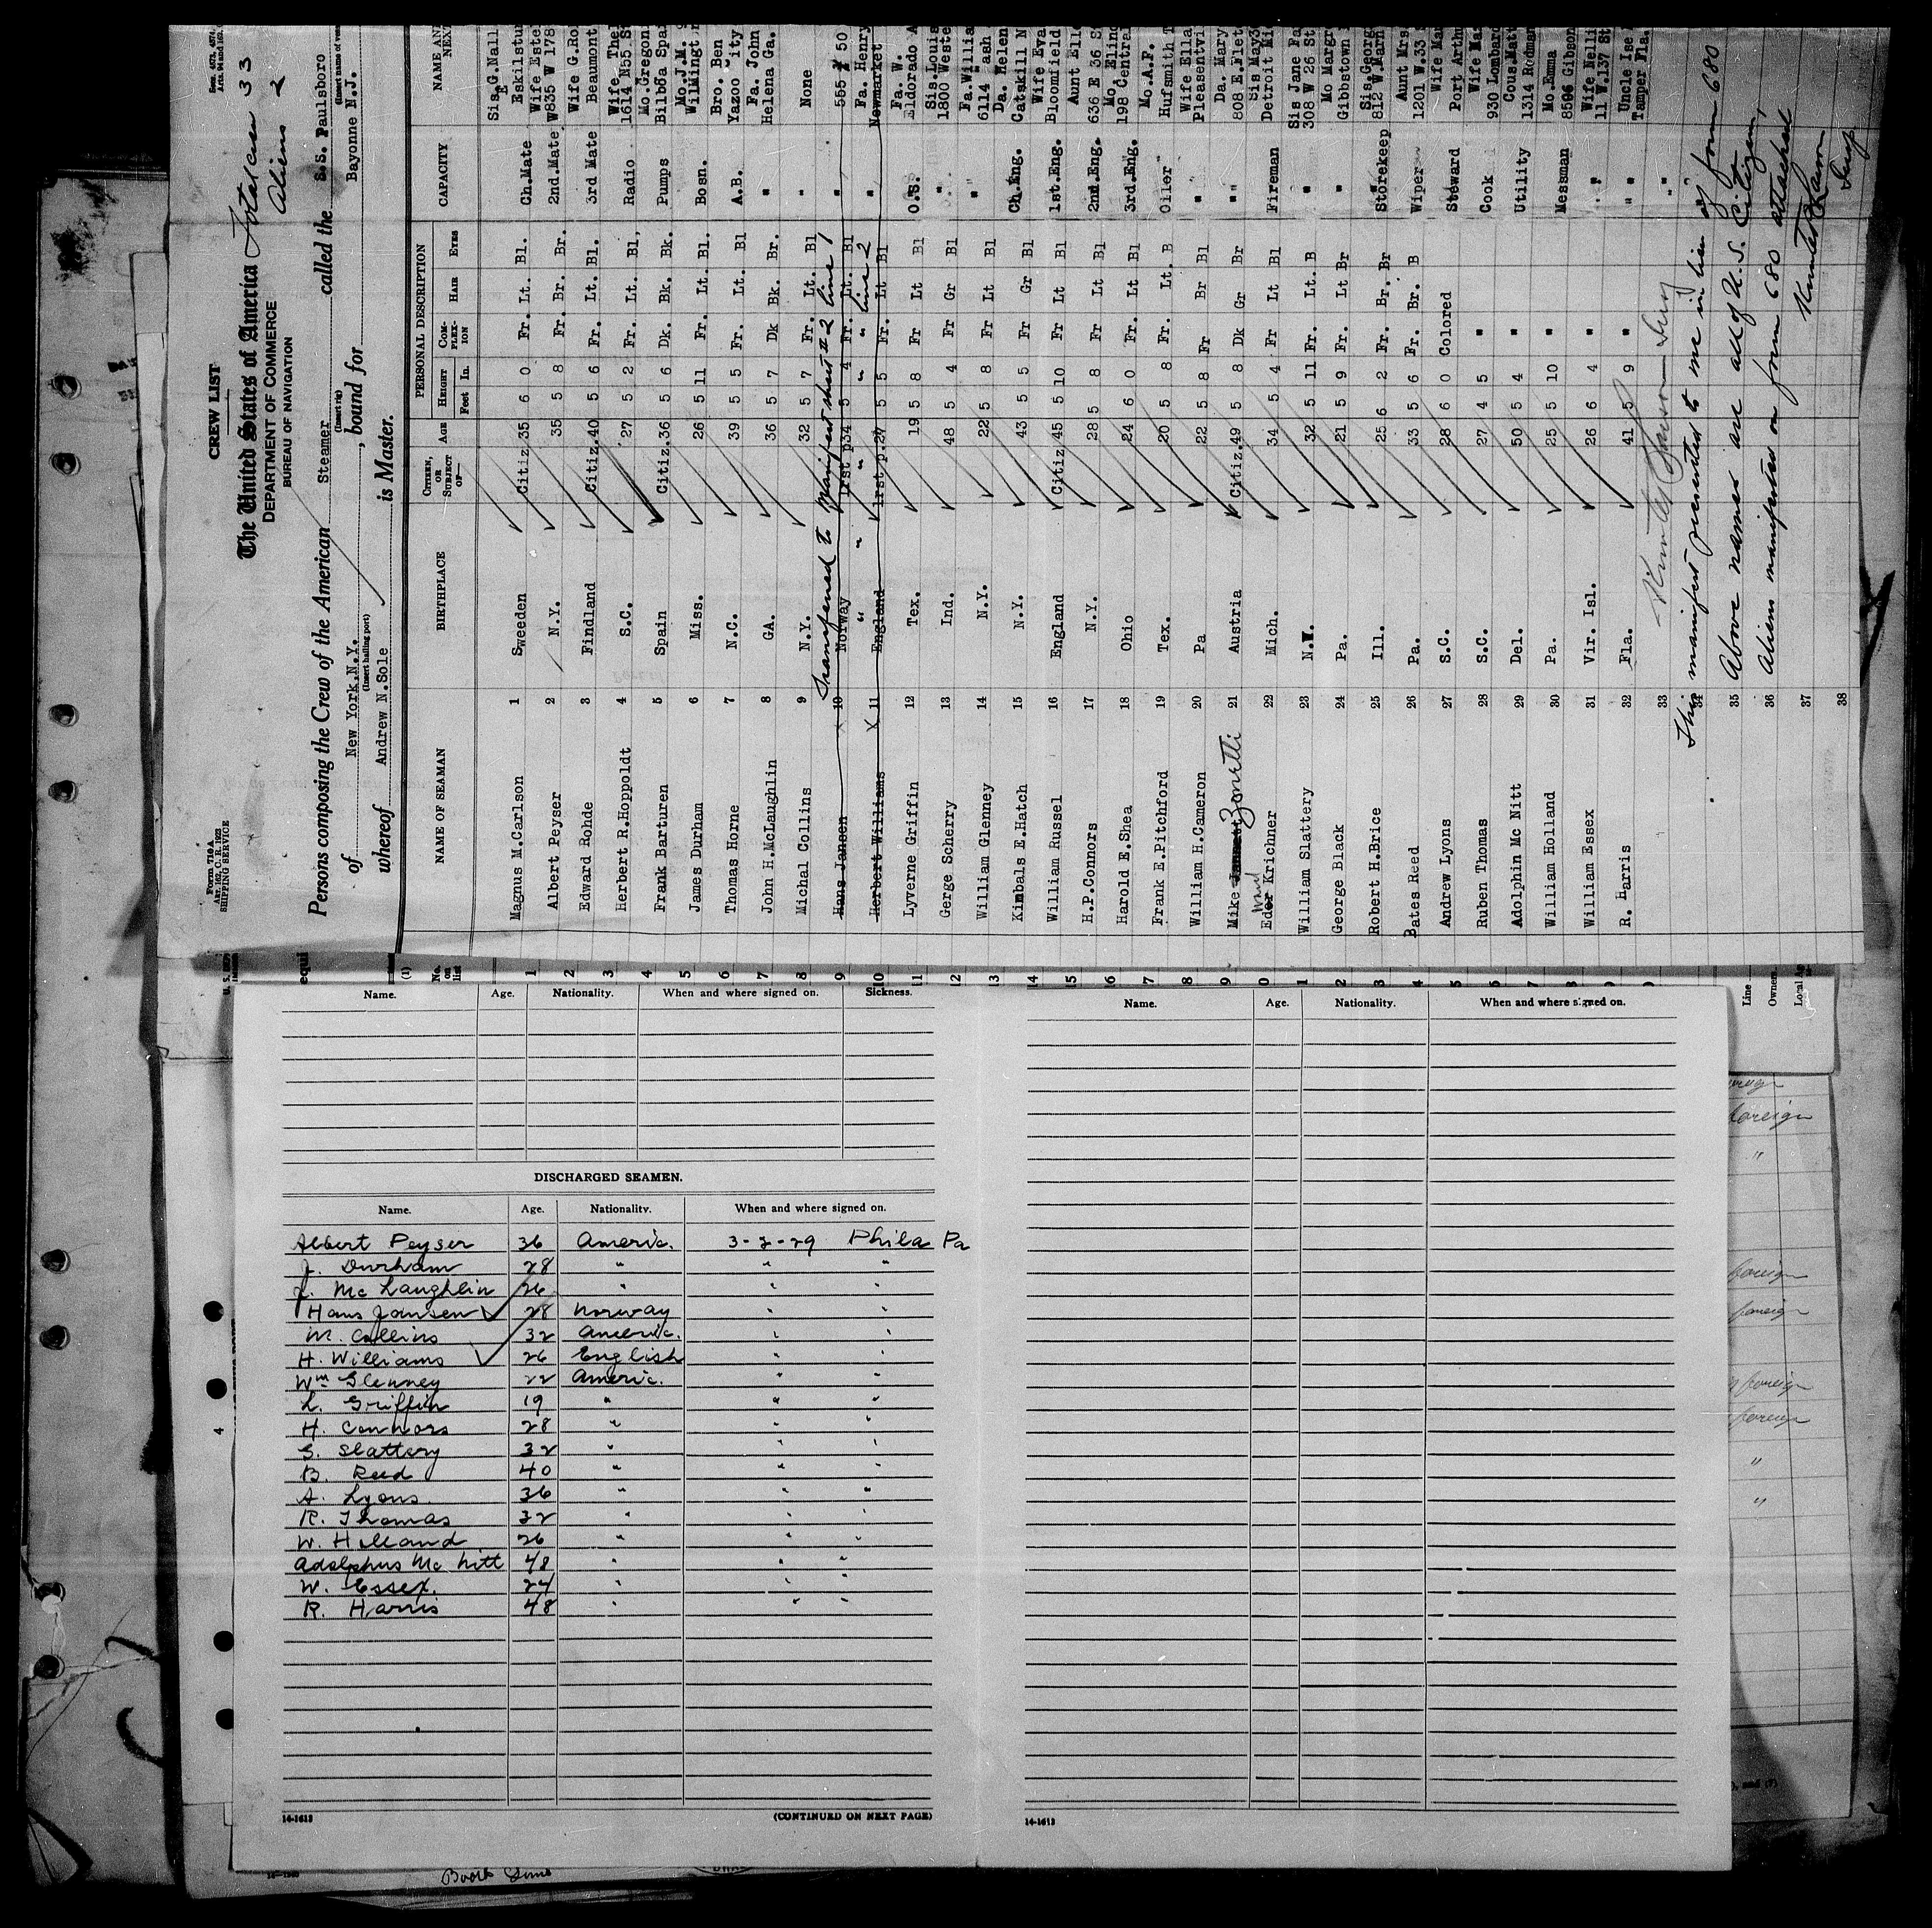 Form 710A
ART. 162, C. R. 1923
SHIPPING SERVICE
CREW LIST
Total crew 33
Aliens 2
The United States of America
DEPARTMENT OF COMMERCE
BUREAU OF NAVIGATION
Persons composing the Crew of the American Steamer called the S.S. Paulsboro
(Insert rig)
of New York.N.Y. , bound for Bayonne N.J.
(Insert hailing port)
whereof Andrew N.Sole is Master.
NAME OF SEAMAN BIRTHPLACE CITIZEN, OR SUBJECT OF— AGE PERSONAL DESCRIPTION CAPACITY
HEIGHT Feet In. COMPLEXION HAIR EYES
Magnus M.Carlson 1 Sweden Citiz. 35 6 0 Fr. Lt. Bl. Ch.Mate Eskilstu
Albert Peyser 2 N.Y. 35 5 8 Fr. Br. Br. 2nd.Mate W835 W 178
Edward Rohde 3 Findland Citiz. 40 5 6 Fr. Lt. Bl. 3rd Mate Beaumont
Herbert R.Hoppoldt 4 S.C. 27 5 2 Fr. Lt. Bl, Radio 1614 N55 S
Frank Barturen 5 Spain Citiz. 36 5 6 Dk. Bk. Bk. Pumps Bilbôa Spa
James Durham 6 Miss. 26 5 11 Fr. Lt. Bl. Bosn. Wilmingt
Thomas Horne 7 N.C. 39 5 5 Fr. Lt. Bl A.B. Yazoo City
John H.McLaughlin 8 GA. 36 5 7 Dk Bk. Br. " Helena Ga.
Michal Collins 9 N.Y. 32 5 7 Fr. Lt. Bl " None
Transferred to Manifest sheet # 2 line 1
Hans Jansen 10 Norway 1rst p. 34 5 4 Fr. Lt. Bl "
" " " " line 2
Herbert Williams 11 England 1rst p. 27 5 5 Fr. Lt Bl " Newmarket
Lyverne Griffin 12 Tex. 19 5 8 Fr Lt Bl O.S. Eldorado A
Gerge Scherry 13 Ind. 48 5 4 Fr Gr Bl 1800 Weste
William Glenney 14 N.Y. 22 5 8 Fr Lt Bl "
Kimbals E.Hatch 15 N.Y. 43 5 5 Fr Gr Bl Ch.Eng. Catskill N
William Russel 16 England Citiz. 45 5 10 Fr Lt Bl 1st.Eng. Bloomfield
H.P.Connors 17 N.Y. 28 5 8 Fr Lt Bl 2nd.Eng. 636 E 36 S
Harold E.Shea 18 Ohio 24 6 0 Fr. Lt Bl 3rd.Eng. 198 Central
Frank E.Pitchford 19 Tex. 20 5 8 Fr. Lt. B Oiler Hufsmith T
William H.Cameron 20 Pa 22 5 8 Fr Br Bl " Pleasentvi
Mike Zonetti 21 Austria Citiz. 49 5 8 Dk Gr Br " 808 E.Flet
Edmund Krichner 22 Mich. 34 5 4 Fr Lt Bl Fireman Detroit Mi
William Slattery 23 N.Y. 32 5 11 Fr. Lt. B " 308 W 26 St
George Black 24 Pa. 21 5 9 Fr. Lt Br " Gibbstown
Robert H.Brice 25 Ill. 25 6 2 Fr. Br. Br Storekeep 812 W.Marn
Bates Reed 26 Pa. 33 5 6 Fr. Br. B Wiper 1201 W.33
Andrew Lyons 27 S.C. 28 6 0 Colored Steward Port Arthu
Ruben Thomas 28 S.C. 27 4 5 " Cook 930 Lombard
Adolphin Mc Nitt 29 Del. 50 5 4 " Utility 1314 Rodman
William Holland 30 Pa. 25 5 10 " Messman 8506 Gibson
William Essex 31 Vir. Isl. 26 6 4 " " 11 W.137 St
R. Harris 32 Fla. 41 5 9 " " Tamper Fla.
33
34 This manifest presented to me in lieu of form 680
35 Above names are all of U.S. Citizen,
36 Aliens manifested on form 680 attached
37
38
Name. Age. Nationality. When and where signed on. Sickness.
DISCHARGED SEAMEN.
Name. Age. Nationality. When and where signed on.
Albert Peyser 36 Americ. 3-2-29 Phila Pa
J. Durham 28 " " "
J. Mc Laughlin 26 " " "
Hans Jansen 28 Norway " "
M. Collins 32 Americ. " "
H. Williams 26 English " "
Wm Glenney 22 Americ. " "
L. Griffin 19 " " "
H. Connors 28 " " "
G. Slattery 32 " " "
B. Reed 40 " " "
A. Lyons 36 " " "
R. Thomas 32 " " "
W. Holland 26 " " "
Adolphus Mc Nitt 48 " " "
W. Essex. 24 " " "
R. Harris 48 " " "
14-1613 (CONTINUED ON NEXT PAGE)
Name. Age. Nationality. When and where signed on.
14-1613
Line
Owners
foreign
"
foreign
foreign
foreign
foreign
"
"